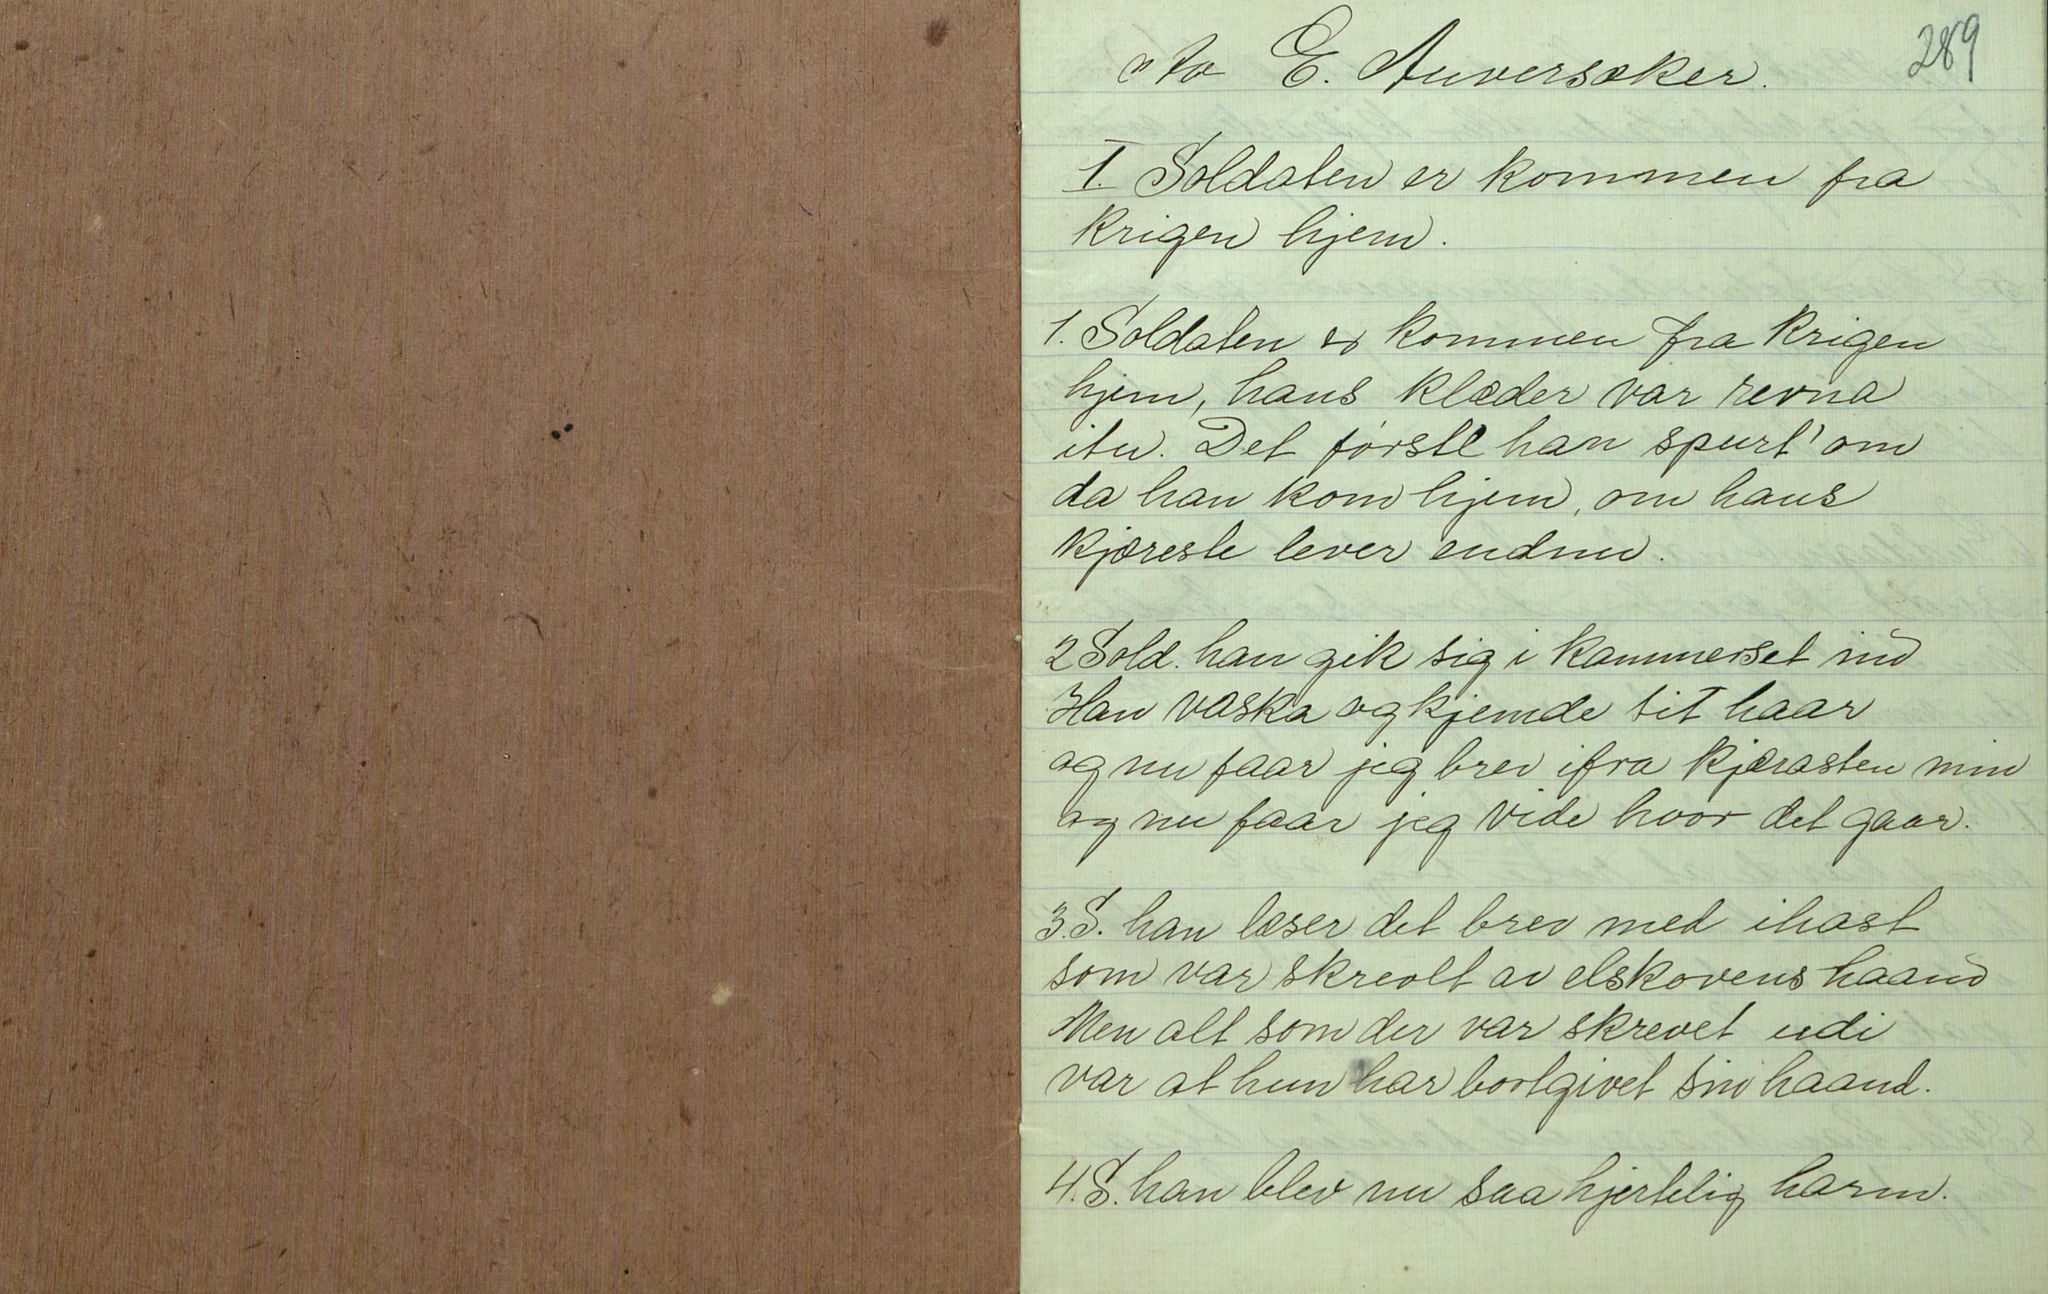 289
Av E. Auversaker.
I. Soldaten er kommen fra
krigen hjem.
1. Soldaten er kommen fra krigen
hjem, hans klæder var revna
itu. Det første han spurt' om
da han kom hjem, om hans
kjæreste lever endnu.
2 Sold. han gik sig i kammerset ind
Han vaska og kjemde sit haar
og nu faar jeg brev ifra kjærasten min
og nu faar jeg vide hvor det gaar.
3. S. han læser det brev med ihast
som var skrevet av elskovens haand
Men alt som der var skrevet udi
var at hun har bortgivet sin haand.
4. S. han blev nu saa hjertelig harm.